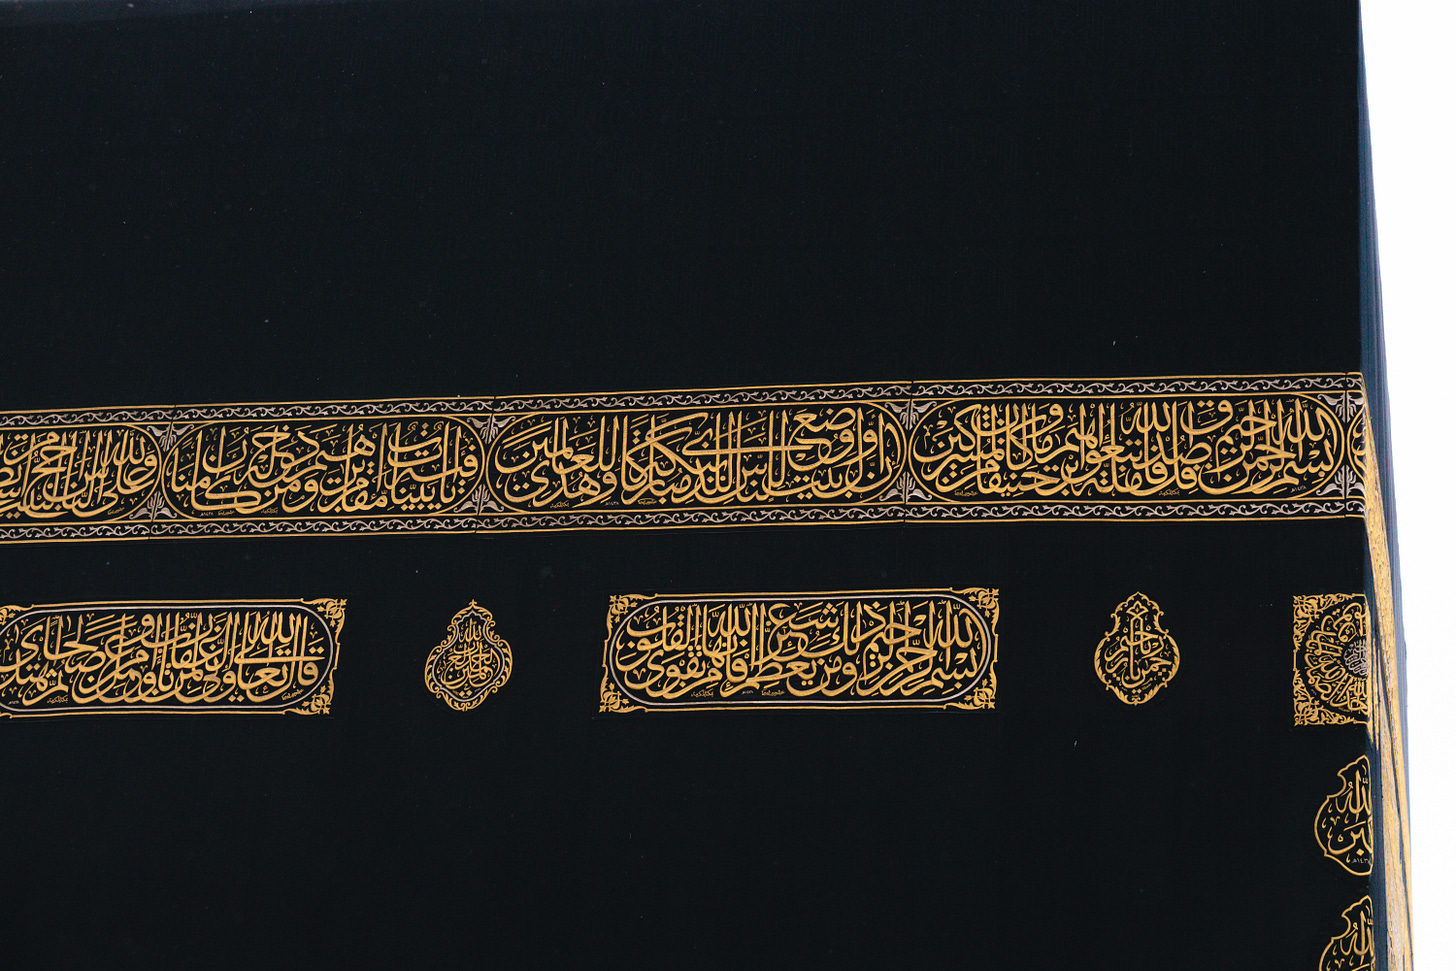 بسم الله الرحمن الرحيم قل صدق الله فاتبعوا ملة إبراهيم حنيفا وما كان من المشركين
إن أول بيت وضع للناس للذي ببكة مباركا وهدى للعالمين
فيه آيات بينات مقام إبراهيم ومن دخله كان آمنا
ولله على الناس حج
بسم الله الرحمن الرحيم ذلك ومن يعظم شعائر الله فإنها من تقوى القلوب
الحمد لله رب العالمين
قال الله تعالى وإني لغفار لمن تاب وآمن وعمل صالحا ثم اهتدى
الله